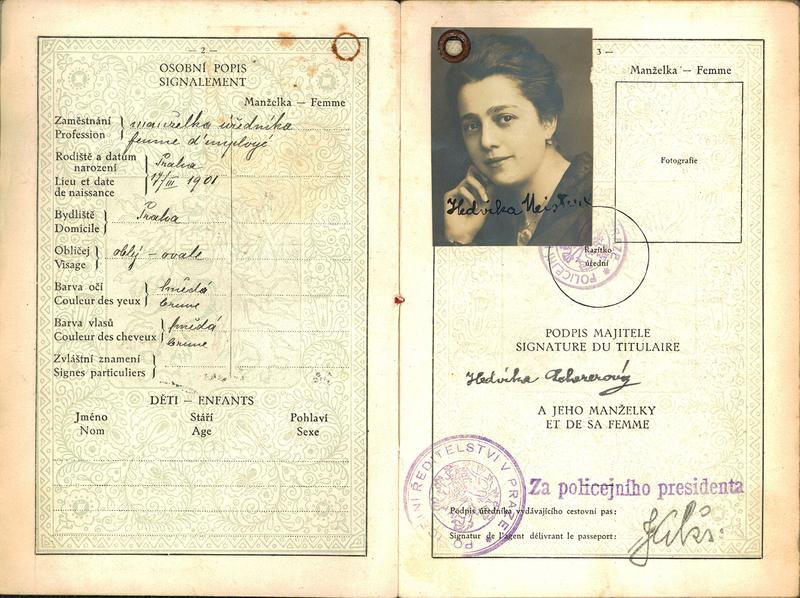 — 2 —
OSOBNÍ POPIS
SIGNALEMENT
Manželka — Femme
Zaměstnání
Profession
manželka úředníka
femme d'employé
Rodiště a datum
narození
Lieu et date
de naissance
Praha
17/III 1901
Bydliště
Domicile
Praha
Obličej
Visage
oblý – ovale
Barva očí
Couleur des yeux
hnědá
brune
Barva vlasů
Couleur des cheveux
hnědá
brune
Zvláštní znamení
Signes particuliers
DĚTI — ENFANTS
Jméno Stáří Pohlaví
Nom Age Sexe
3 —
Manželka — Femme
Fotografie
Hedvika
Razítko
úřední
PODPIS MAJITELE
SIGNATURE DU TITULAIRE
Hedvika
A JEHO MANŽELKY
ET DE SA FEMME
ŘEDITELSTVÍ V PRAZE
Za policejního presidenta
Podpis úředníka vydávajícího cestovní pas:
Signatur de l'agent délivrant le passeport: